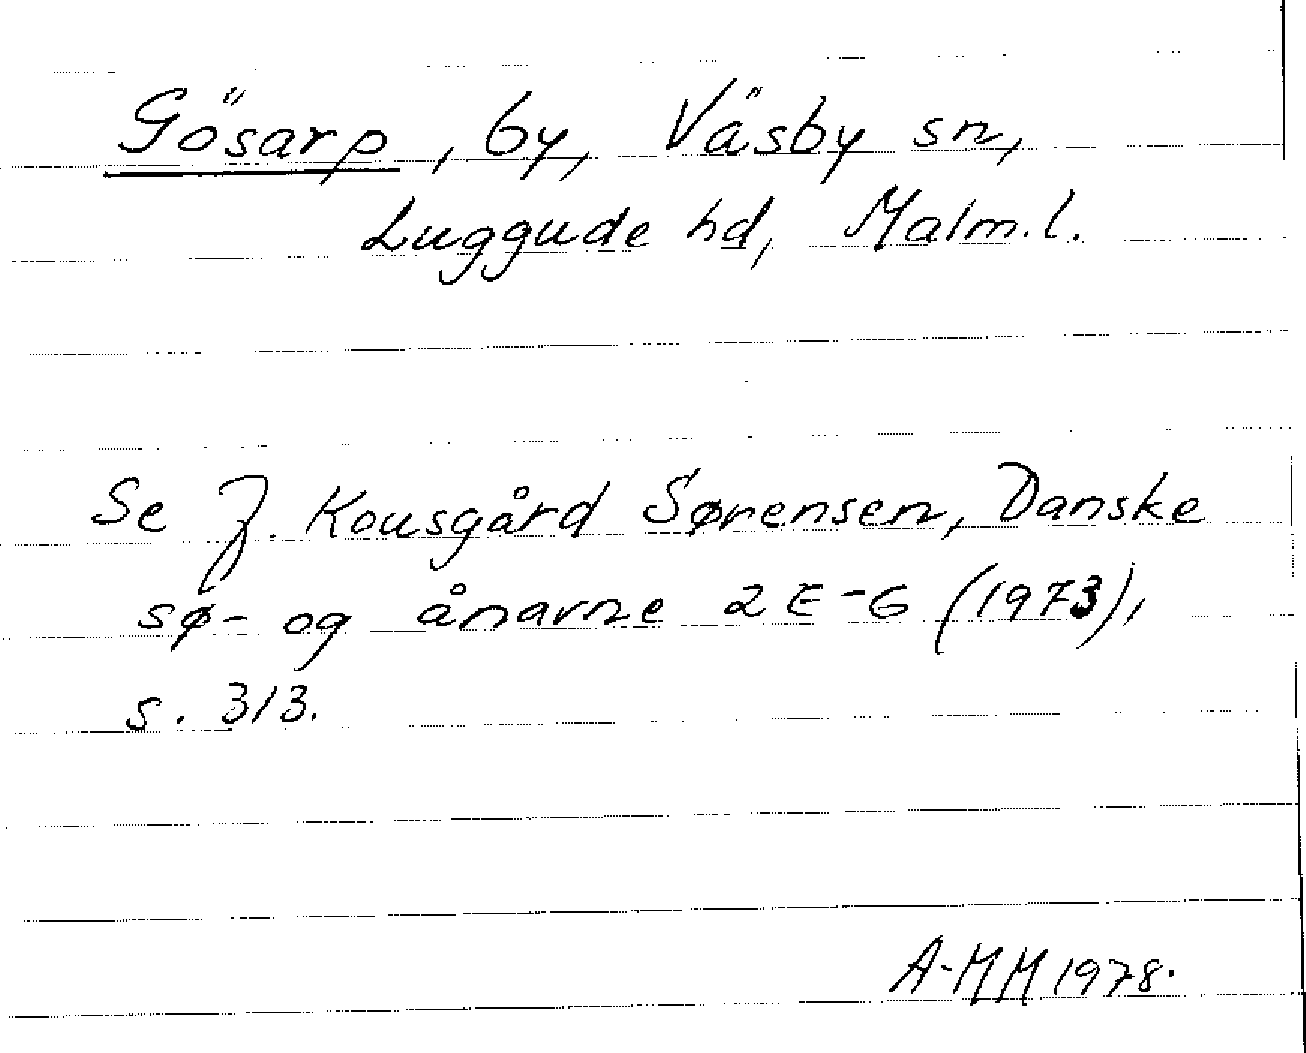 Gösarp, by, Väsby sn,
Luggude hd, Malm.l.
Se J. Kousgård Sørensen, Danske
sø- og ånavne 2 E-G (1973),
s. 313.
A-MM 1978.